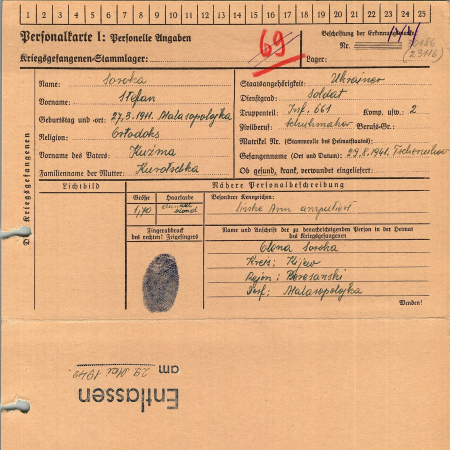 1 2 3 4 5 6 7 8 9 10 11 12 13 14 15 16 17 18 19 20 21 22 23 24 25
Personalkarte I: Personelle Angaben
Kriegsgefangenen-Stammlager:
69
Beschriftung der Erkennungsmarke
Nr.
Lager:
Des Kriegsgefangenen
Name: Soroka
Vorname: Stefan
Geburtstag und -ort: 27.3.1911. Malasopolojka
Religion: Ortodoks
Vorname des Vaters: Kuzma
Familienname der Mutter: Kurotschka
Staatsangehörigkeit: Ukrainer
Dienstgrad: Soldat
Truppenteil: Inf. 661 Komp. usw.: 2
Zivilberuf: Schuhmaker Berufs-Gr.:
Matrikel Nr. (Stammrolle des Heimatstaates):
Gefangennahme (Ort und Datum): 29.8.1941,
Ob gesund, krank, verwundet eingeliefert:
Lichtbild
Nähere Personalbeschreibung
Größe
1,70
Haarfarbe
Besondere Kennzeichen:
linke Arm amputiert
Fingerabdruck
des rechten! Zeigefingers
Name und Anschrift der zu benachrichtigenden Person in der Heimat
des Kriegsgefangenen
Olena Soroka
Kreis: Kijew
Rajon: Beresanski
Dorf: Malasopolojka
Wenden!
Entlassen
am 29. Mai 1942.